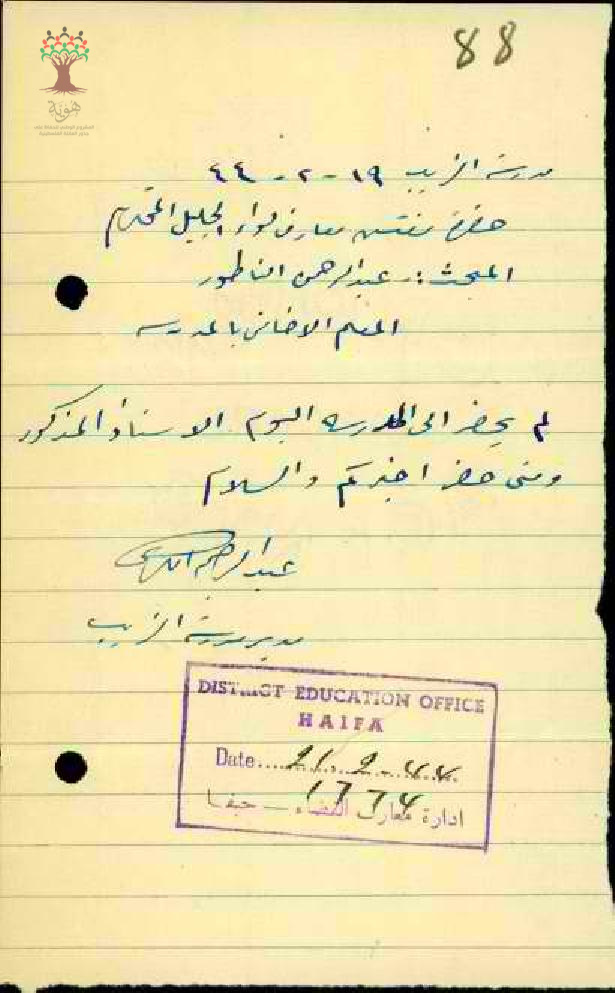 88
هوية
مدرسة الزيب ١٩-٢-٤٤
حضرة مفتش معارف لواء الجليل المحترم
المبحث :- عبد الرحمن الناطور
المعلم الاضافي بالمدرسه
لم يحضر الى المدرسه اليوم الاستاذ المذكور
ومتى حضر اخبركم والسلام
عبد الرحيم
مدير مدرسة الزيب
DISTRICT EDUCATION OFFICE
HAIFA
Date 21.2-44
1774
ادارة معارف القضاء - حيفا